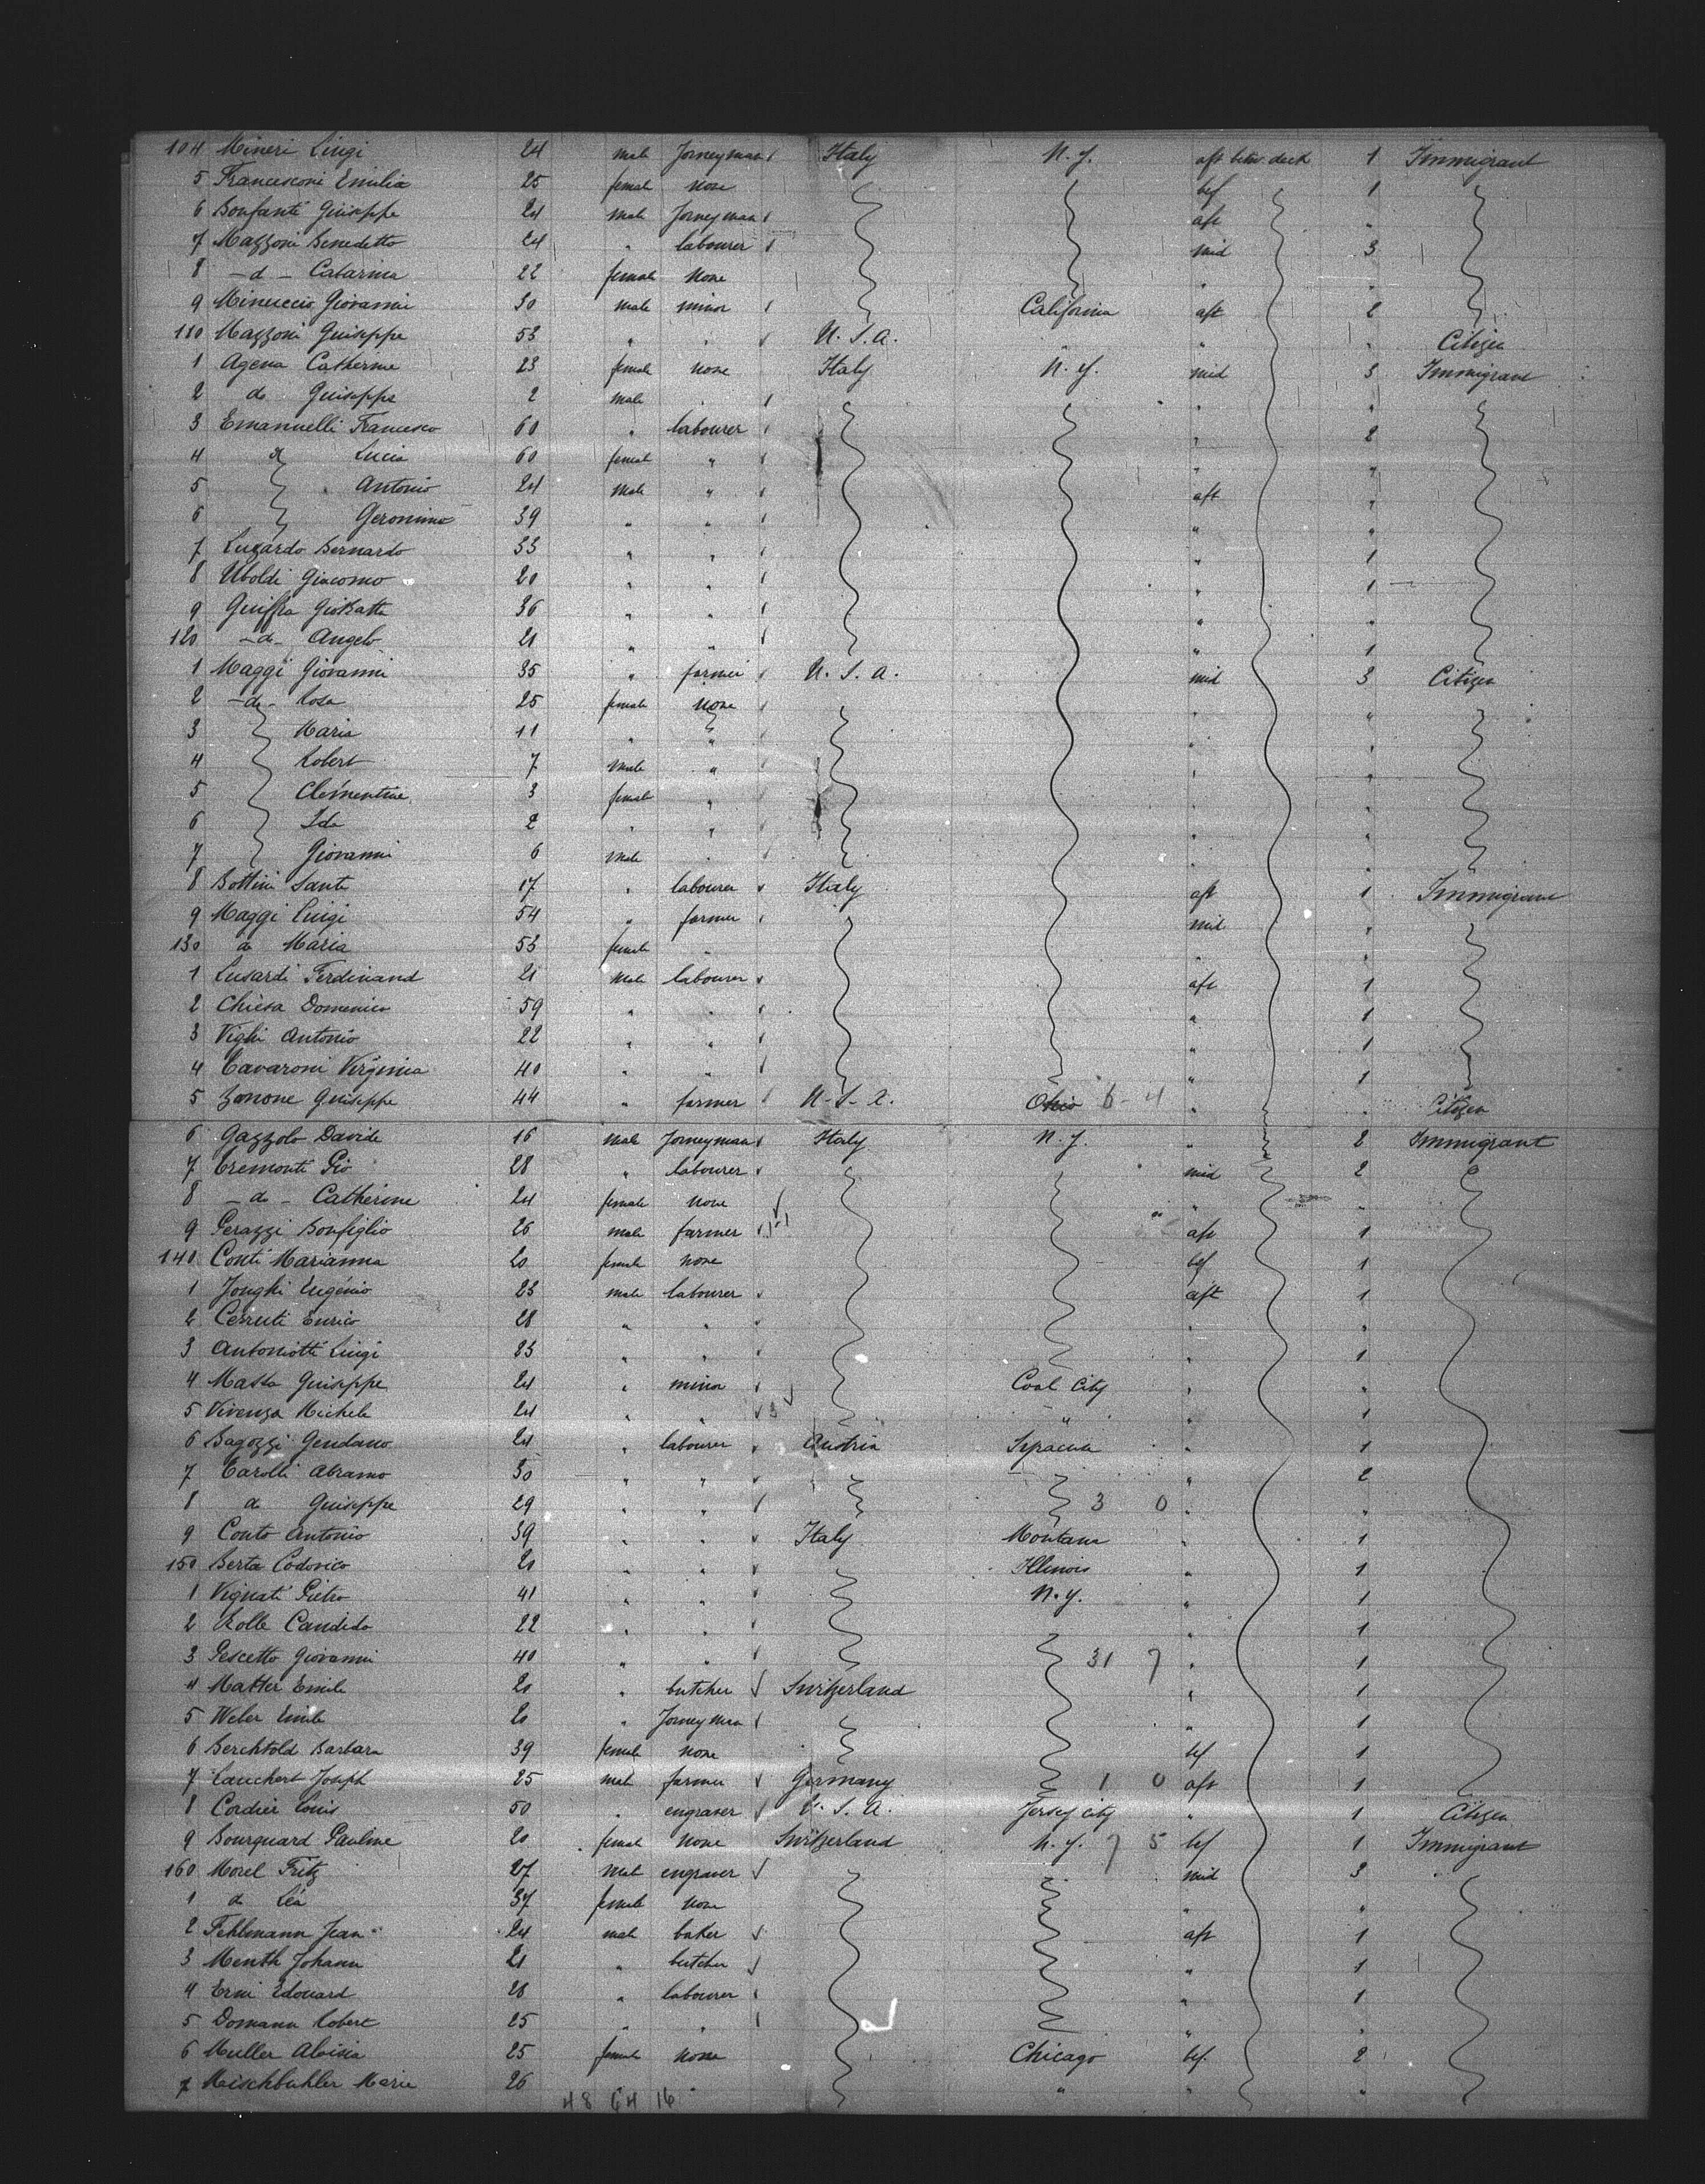 104 Mineri Luigi 24 male Jorneyman Italy N.Y. aft betw. deck 1 Immigrant
5 Francesconi Emilia 25 female none bef 1
6 Bonfanti Guiseppe 24 male Jorneyman aft "
7 Mazzoni Benedetto 24 " labourer mid 3
8 -d- Catarina 22 female none " "
9 Minuccio Giovanni 30 male minor California aft 2
110 Mazzoni Guiseppe 53 " " U.S.A. " " " Citizen
1 Agena Catherine 23 female none Italy N.Y. mid 3 Immigrant
2 do Guiseppe 2 male " " "
3 Emanuelli Francesco 60 " labourer " 2
4 d Lucia 60 female " " "
5 Antonio 24 male " aft "
6 Geronimo 39 " " " "
7 Lugardo Bernardo 33 " " " 1
8 Uboldi Giacomo 20 " " " 1
9 Guiffra GioBatta 36 " " "
120 -d- Angelo 21 " " " 1
1 Maggi Giovanni 35 " farmer U.S.A. mid 3 Citizen
2 -do- Rosa 25 female none " "
3 Maria 11 " " " "
4 Robert 7 male " " "
5 Clémentine 3 female " " "
6 Ida 2 " " " "
7 Giovanni 6 male " " "
8 Bottini Santi 17 " labourer Italy aft 1 Immigrant
9 Maggi Luigi 54 " farmer mid "
130 d Maria 53 female " " "
1 Lusardi Ferdinand 21 male labourer aft 1
2 Chiesa Domenico 59 " " " 1
3 Vighi Antonio 22 " " " 1
4 Cavaroni Virginia 40 " " " 1
5 Zonone Guiseppe 44 " farmer U.S.A. Ohio 6-4 " " Citizen
6 Gazzolo Davide 16 male Jorneyman Italy N.Y. " 2 Immigrant
7 Cremonti Pio 28 " labourer mid 2
8 -d- Catherine 24 female none " "
9 Perazzi Bonfiglio 26 male farmer aft 1
140 Conti Marianna 20 female none bef 1
1 Jonghi Eugénio 23 male labourer aft 1
2 Cerruti Enrico 28 " " " "
3 Antoniotti Luigi 23 " " " 1
4 Massa Guiseppe 24 " minor Coal City " "
5 Vivenza Michele 24 " " " " 1
6 Bagozzi Gendano 24 " labourer Austria Syracuse " 1
7 Carolli Abramo 30 " " " 2
8 d Guiseppe 29 " " 3 0 " "
9 Conto Antonio 39 " " Italy Montana " 1
150 Berta Codovico 20 " " Illinois " 1
1 Vignati Pietro 41 " " N.Y. " 1
2 Rolle Candido 22 " " " 1
3 Pescetto Giovanni 40 " " 31 7 " 1
4 Matter Emile 20 " butcher Switzerland " 1
5 Weber Emile 20 " Jorneyman " 1
6 Berchtold Barbara 39 female none bef 1
7 Lauchert Joseph 25 male farmer Germany 1 0 aft 1
8 Cordier Louis 50 " engraver U.S.A. Jersey City " 1 Citizen
9 Bourquard Pauline 20 female none Switzerland N.Y. 7 5 bef 1 Immigrant
160 Morel Fritz 27 male engraver mid 3
1 d Léa 37 female none " "
2 Fehlmann Jean 24 male baker aft 1
3 Menth Johann 21 " butcher " 1
4 Erni Edouard 28 " labourer " 1
5 Domann Robert 25 " " " "
6 Muller Aloisia 25 female none Chicago bef. 2
7 Meischbuhler Marie 26 " " " " "
48 64 16